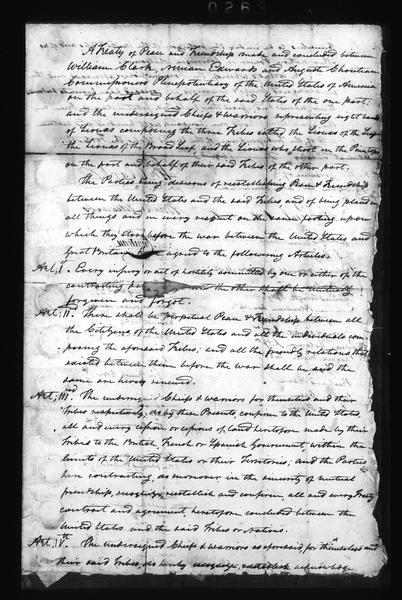 0263
A Treaty of Peace and Friendship made and concluded between
William Clark, Ninian Edwards and Auguste Chouteau
Commissioners Plenipotentiary of the United States of America
on the part and behalf of the said States of the one part;
and the undersigned Chiefs & Warriors representing eight bands
of Siouxs composing the three Tribes called the Siouxs of the Leaf,
the Siouxs of the Broad Leaf, and the Siouxs who shoot in the Pine tops
on the part and behalf of their said Tribes of the other part.
The Parties being desirous of reestablishing Peace & Friendship
between the United States and the said Tribes and of being placed in
all things and in every respect on the same footing upon
which they stood before the war between the United States and
Great Britain agreed to the following Articles.
Art. I. Every injury or act of hostility committed by one or either of the
contracting the other shall be mutually
forgiven and forgot.
Art. II. There shall be perpetual Peace & Friendship between all
the Citizens of the United States and all the individuals com
posing the aforesaid Tribes; and all the friendly relations that
existed between them before the war shall be and the
same are hereby renewed.
Art. III. The undersigned Chiefs & Warriors for themselves and their
Tribes respectively, do by these Presents, confirm to the United States
all and every cession or cessions of land heretofore made by their
Tribes to the British, French or Spanish Government, within the
limits of the United States or their Territories; and the Parties
here contracting, do moreover, in the sincerity of mutual
friendship, recognize, reestablish and confirm, all and every Treaty
contract and agreement heretofore concluded between the
United States and the said Tribes or Nations.
Art. IV. The undersigned Chiefs & Warriors as aforesaid, for themselves and
their said Tribes, do hereby acknowledge